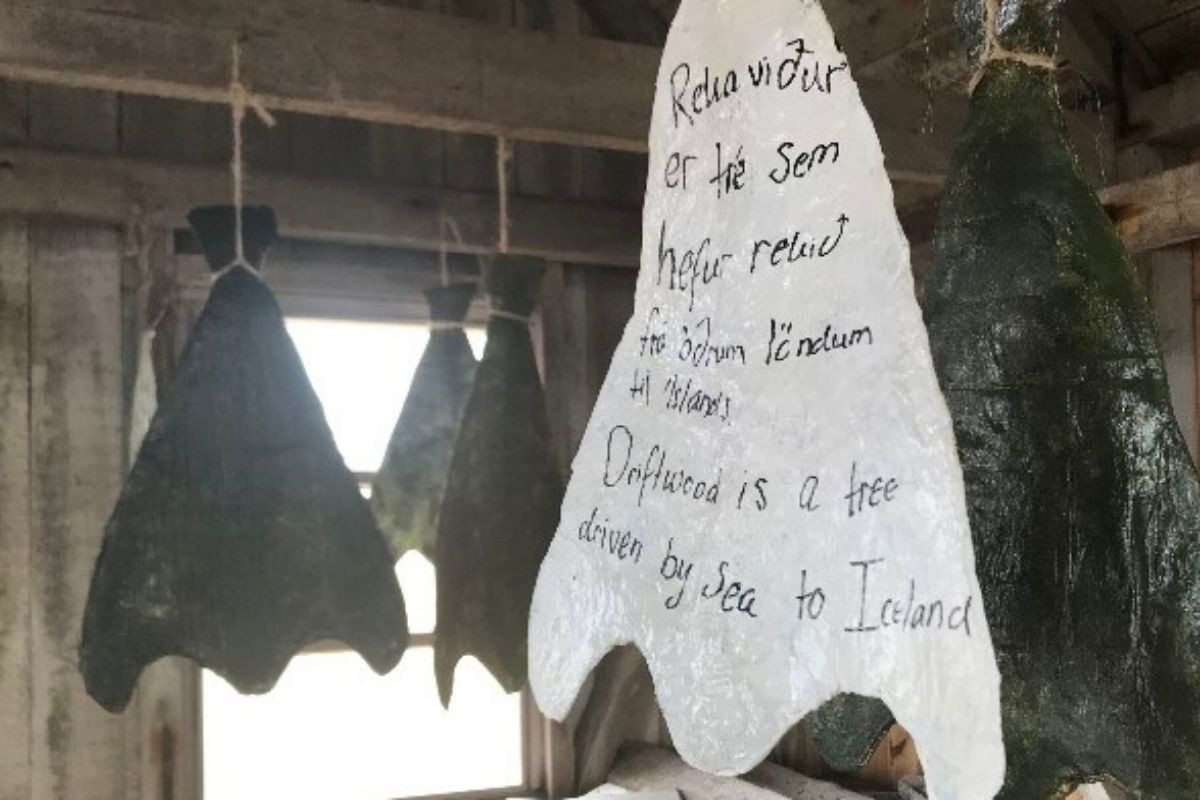 Rekaviður
er tré sem
hefur rekið
frá öðrum löndum
til Íslands.
Driftwood is a tree
driven by Sea to Iceland